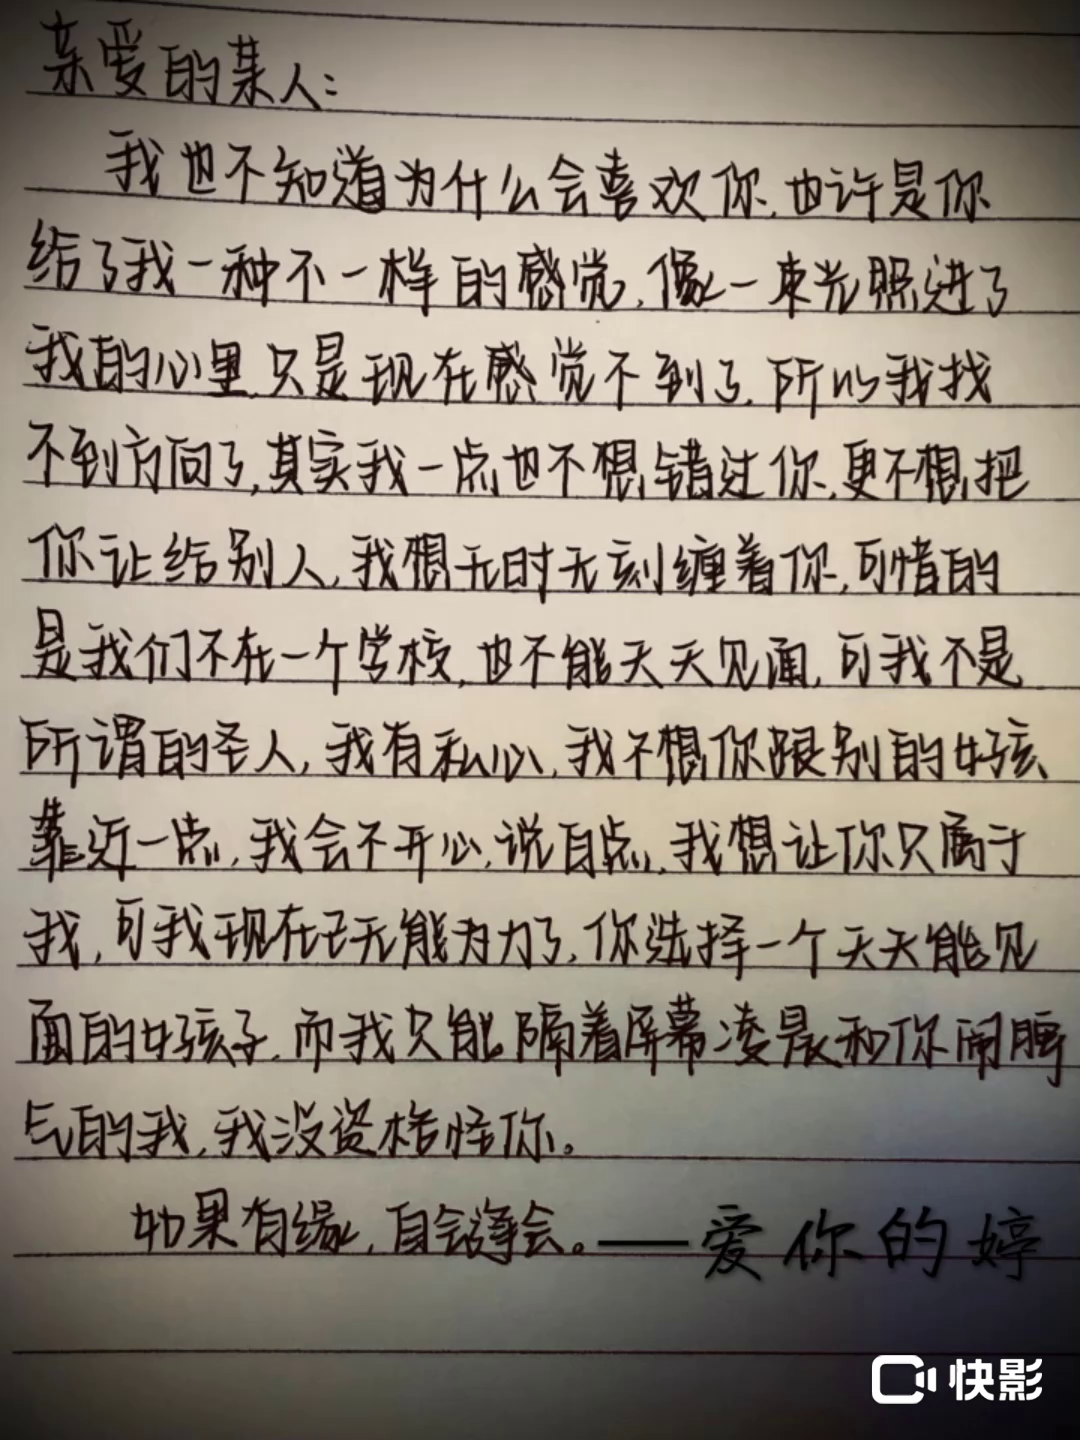 亲爱的某人:
我也不知道为什么会喜欢你,也许是你
给了我一种不一样的感觉,像一束光照进了
我的心里,只是现在感觉不到了,所以我找
不到方向了,其实我一点也不想错过你,更不想把
你让给别人,我想无时无刻缠着你,可惜的
是我们不在一个学校,也不能天天见面,可我不是
所谓的圣人,我有私心,我不想你跟别的女孩
靠近一点,我会不开心,说白点,我想让你只属于
我,可我现在已无能为力了,你选择一个天天能见
面的女孩子,而我只能隔着屏幕凌晨和你闹脾
气的我,我没资格怪你。
如果有缘,自会逢会。——爱你的婷
快影